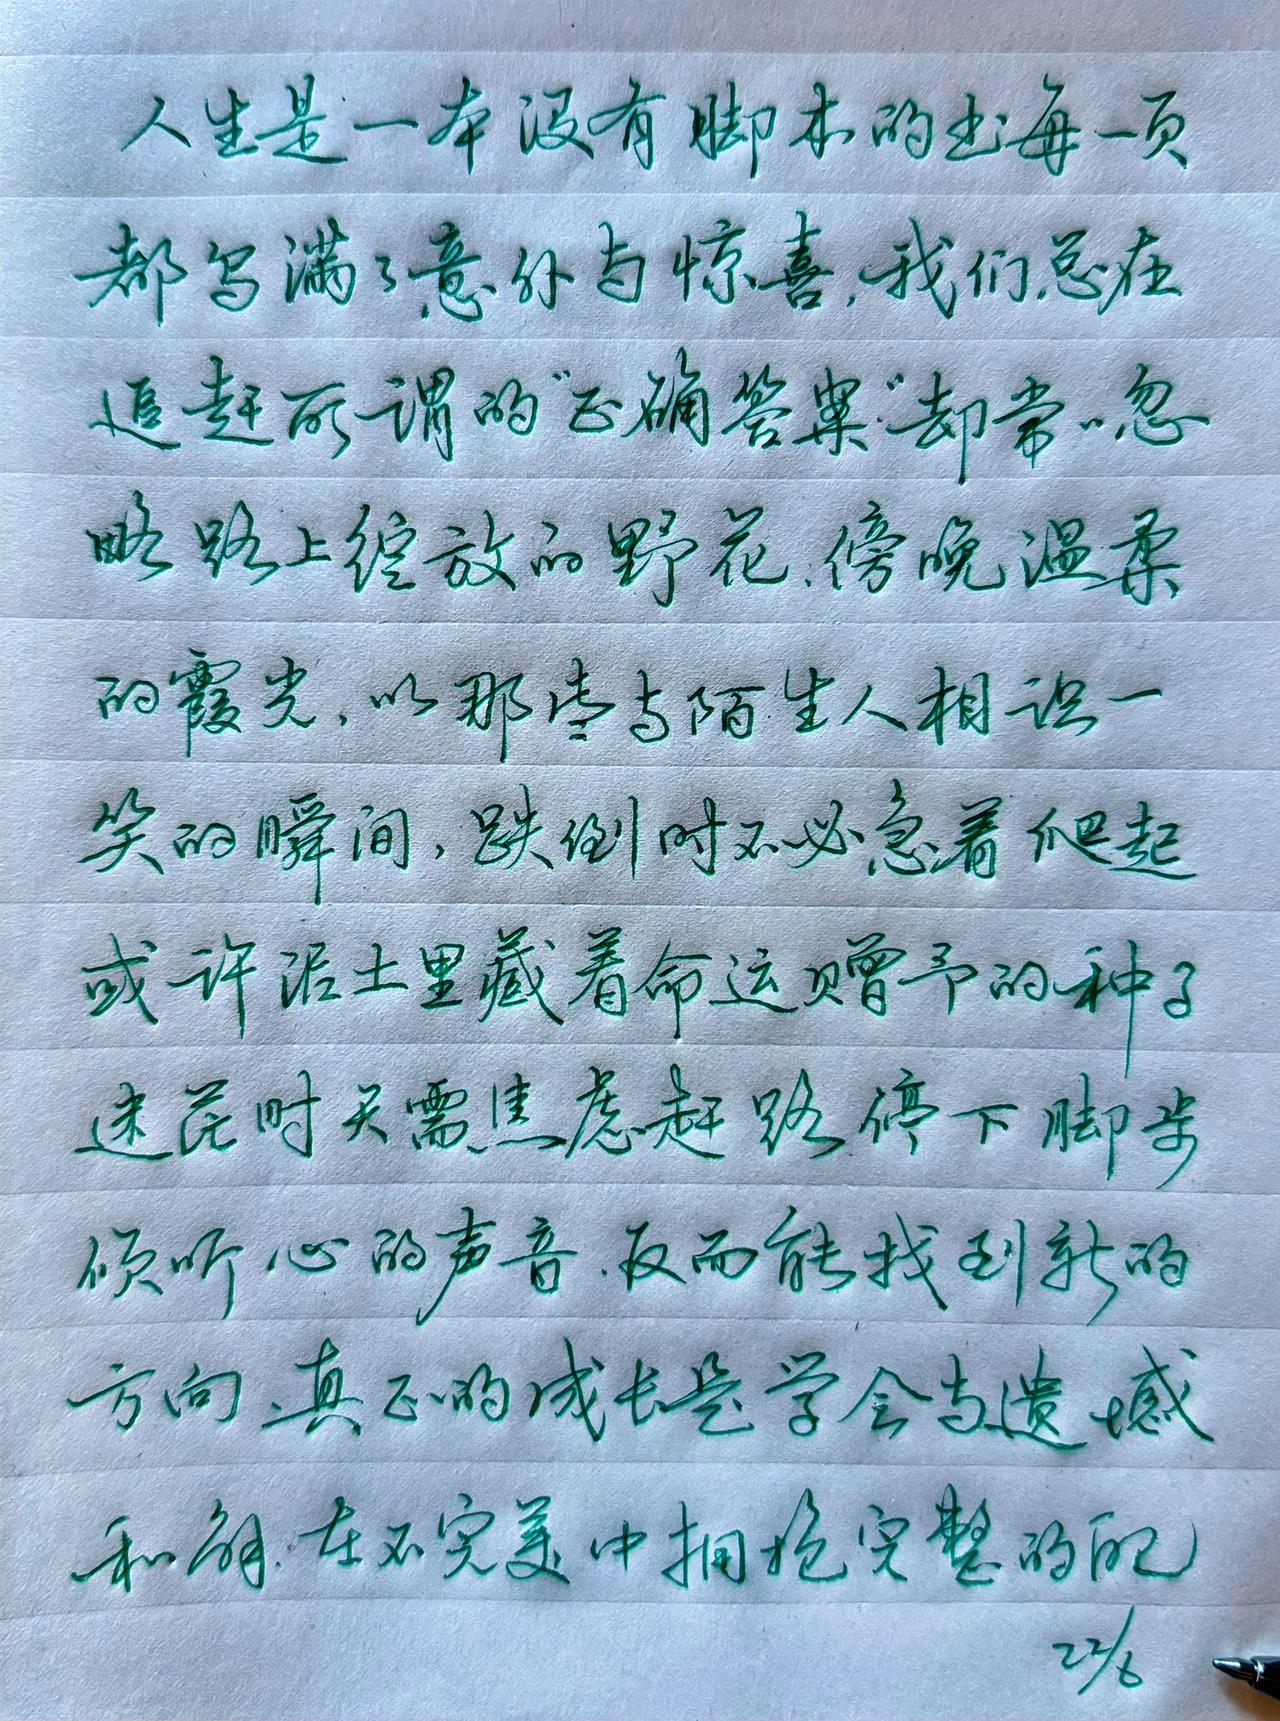 人生是一本没有脚本的书每一页
都写满了意外与惊喜,我们总在
追赶所谓的"正确答案"却常常忽
略路上绽放的野花、傍晚温柔
的霞光,以那些与陌生人相识一
笑的瞬间,跌倒时不必急着爬起
或许泥土里藏着命运赠予的种子
迷茫时无需焦虑赶路停下脚步
倾听心的声音,反而能找到新的
方向,真正的成长是学会与遗憾
和解,在不完美中拥抱完整的自己
22/6